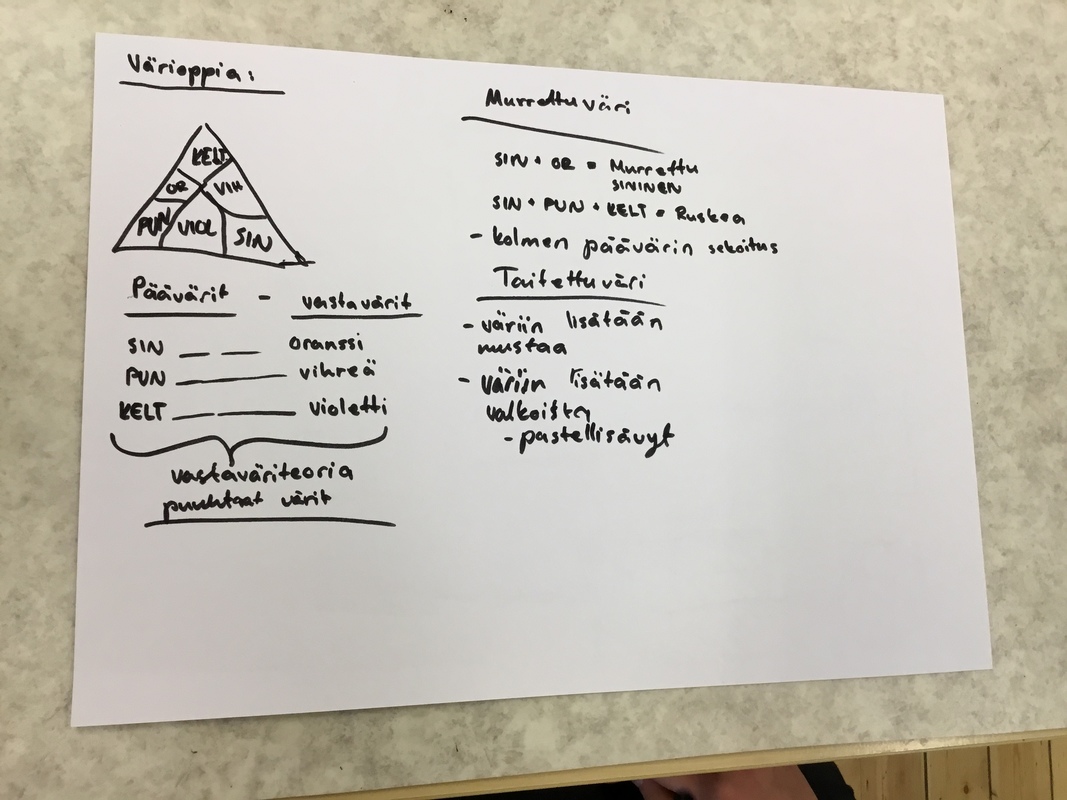 Värioppia:
KELT
OR VIH
PUN VIOL SIN
Päävärit - vastavärit
SIN — — oranssi
PUN — vihreä
KELT — — violetti
vastaväriteoria
puuhtaat värit
Murrettu väri
SIN + OR = Murrettu
SININEN
SIN + PUN + KELT = Ruskea
- kolmen päävärin sekoitus
Taitettu väri
- väriin lisätään
mustaa
- väriin lisätään
valkoista
- pastellisävyt